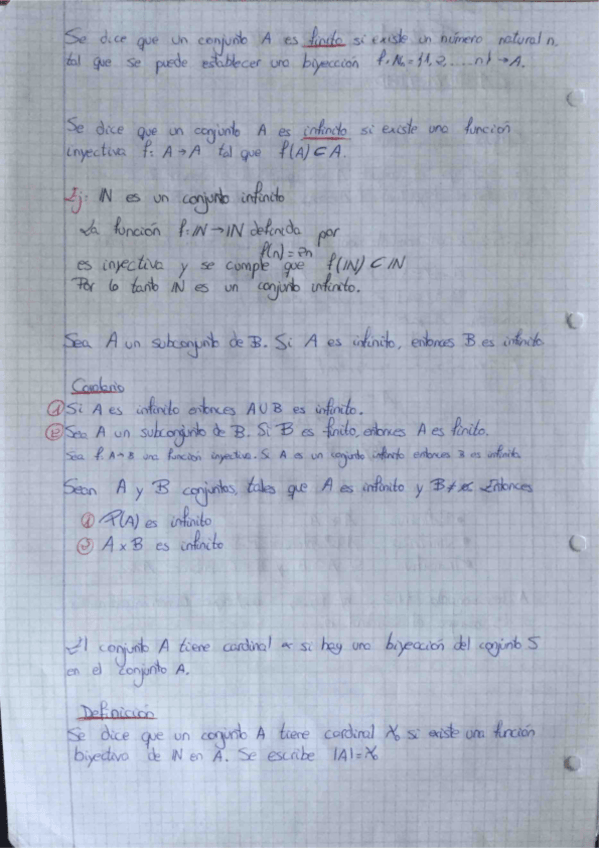 Se dice que un conjunto A es finito si existe un número natural n,
tal que se puede establecer una biyección f: Nₙ = {1, 2, .....n} → A.
Se dice que un conjunto A es infinito si existe una función
inyectiva f: A → A tal que f(A) ⊂ A.
Ej: IN es un conjunto infinito
La función f: IN → IN definida por
f(n) = 2n
es inyectiva y se cumple que f(IN) ⊂ IN
Por lo tanto IN es un conjunto infinito.
Sea A un subconjunto de B. Si A es infinito, entonces B es infinito
Corolario
① Si A es infinito entonces A U B es infinito.
② Sea A un subconjunto de B. Si B es finito, entonces A es finito.
Sea f: A → B una función inyectiva. Si A es un conjunto infinito entonces B es infinito
Sean A y B conjuntos, tales que A es infinito y B ≠ Entonces
① P(A) es infinito
② A x B es infinito
El conjunto A tiene cardinal ∝ si hay una biyección del conjunto S
en el conjunto A.
Definición
Se dice que un conjunto A tiene cardinal ℵ₀ si existe una función
biyectiva de IN en A. Se escribe |A| = ℵ₀